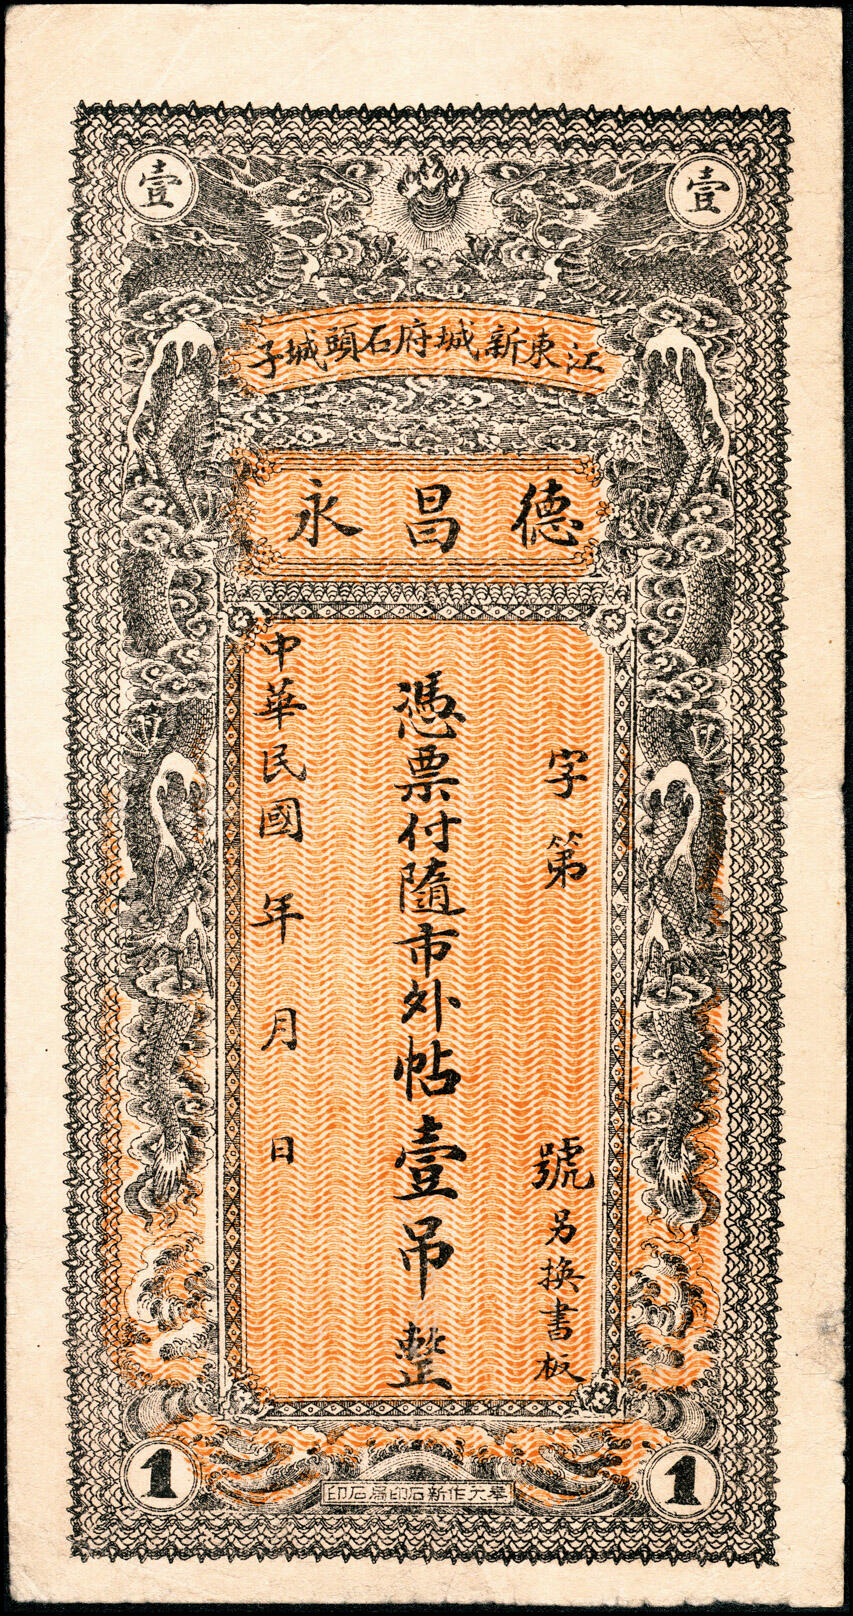 壹
壹
江東新城府石頭城子
德昌永
字第 號另换書板
憑票付隨市外帖壹吊整
中華民國 年 月 日
1
1
作新石印局石印